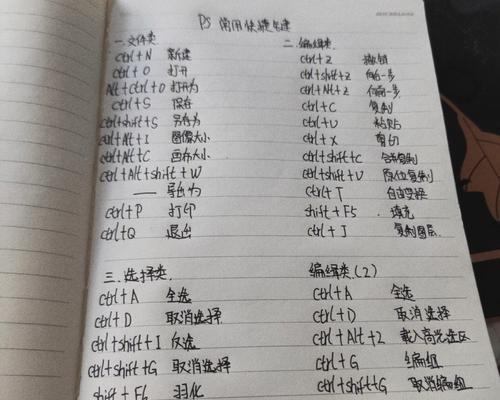 PS 常用快捷键
一.文件类
ctrl+N 新建
ctrl+O 打开
Alt+ctrl+O 打开为
ctrl+S 保存
ctrl+shift+S 另存为
ctrl+Alt+I 图像大小
ctrl+Alt+C 画布大小
ctrl+Alt+shift+W
—— 导出为
ctrl+P 打印
ctrl+Q 退出
二.编辑类
ctrl+Z 撤销
ctrl+shift+Z 向前一步
ctrl+Alt+Z
ctrl+C 复制
ctrl+V 粘贴
ctrl+X 剪切
ctrl+shift+C 合并复制
ctrl+shift+V 原位复制
ctrl+T 自由变换
shift+F5 填充
ctrl+J 复制图层
三.选择类
ctrl+A 全选
ctrl+D 取消选择
ctrl+shift+I 反选
ctrl+shift+G 取消选择
shift+F6 羽化
编辑类(2)
ctrl+A 全选
ctrl+D 取消选择
ctrl+Alt+2 载入高光选区
ctrl+G 编组
ctrl+shift+G 取消编组